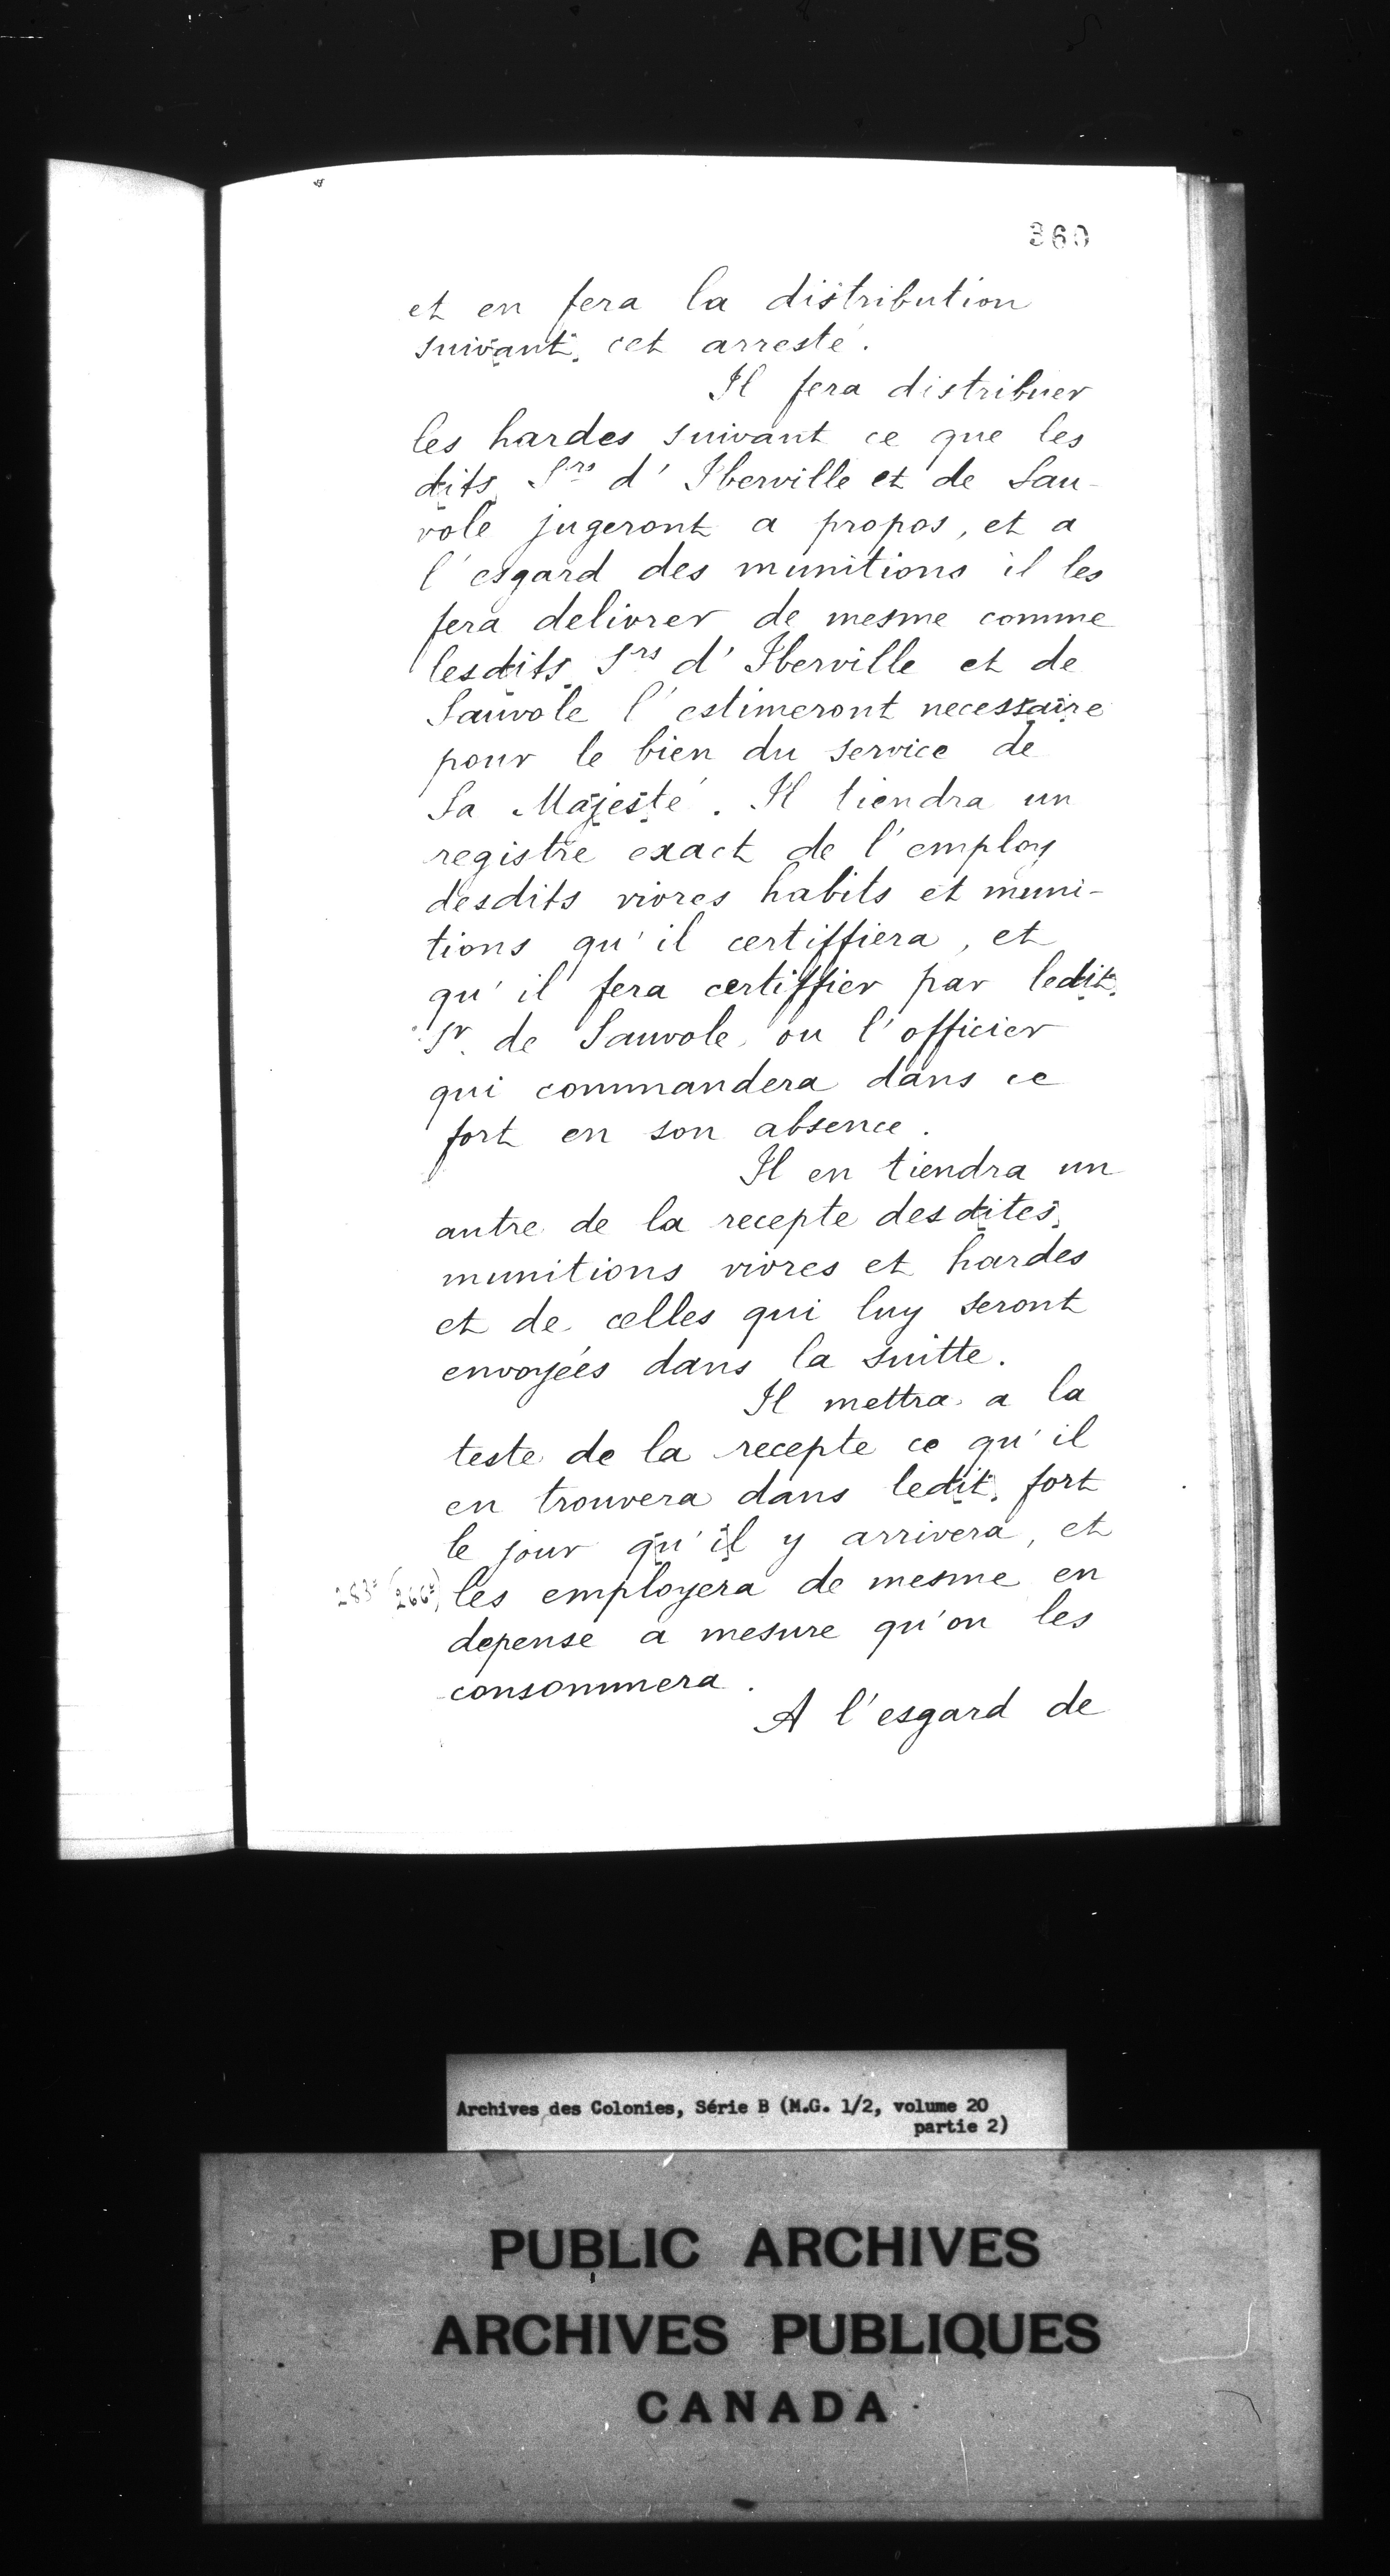 360
et en fera la distribution
suivant cet arresté.
Il fera distribuer
les hardes suivant ce que les
dits Srs d'Iberville et de Sau-
vole jugeront a propos, et a
l'esgard des munitions il les
fera delivrer de mesme comme
lesdits Srs d'Iberville et de
Sauvole l'estimeront necessaire
pour le bien du service de
Sa Majesté. Il tiendra un
registre exact de l'employ
desdits vivres habits et muni-
tions qu'il certiffiera, et
qu'il fera certiffier par ledit
Sr. de Sauvole ou l'officier
qui commandera dans ce
fort en son absence.
Il en tiendra un
autre de la recepte desdites
munitions vivres et hardes
et de celles qui luy seront
envoyées dans la suitte.
Il mettra a la
teste de la recepte ce qu'il
en trouvera dans ledit fort
le jour qu'il y arrivera, et
les employera de mesme en
depense a mesure qu'on les
consommera.
A l'esgard de
Archives des Colonies, Série B (M.G. 1/2, volume 20
partie 2)
PUBLIC ARCHIVES
ARCHIVES PUBLIQUES
CANADA